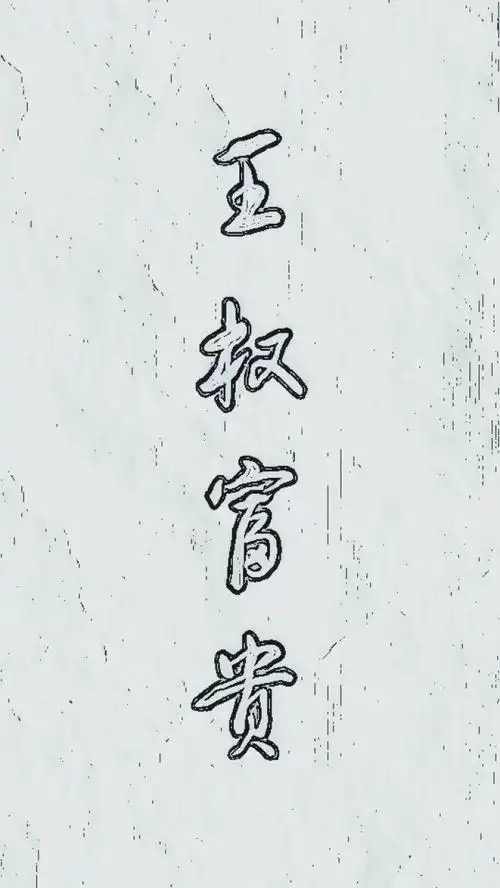 王权富贵